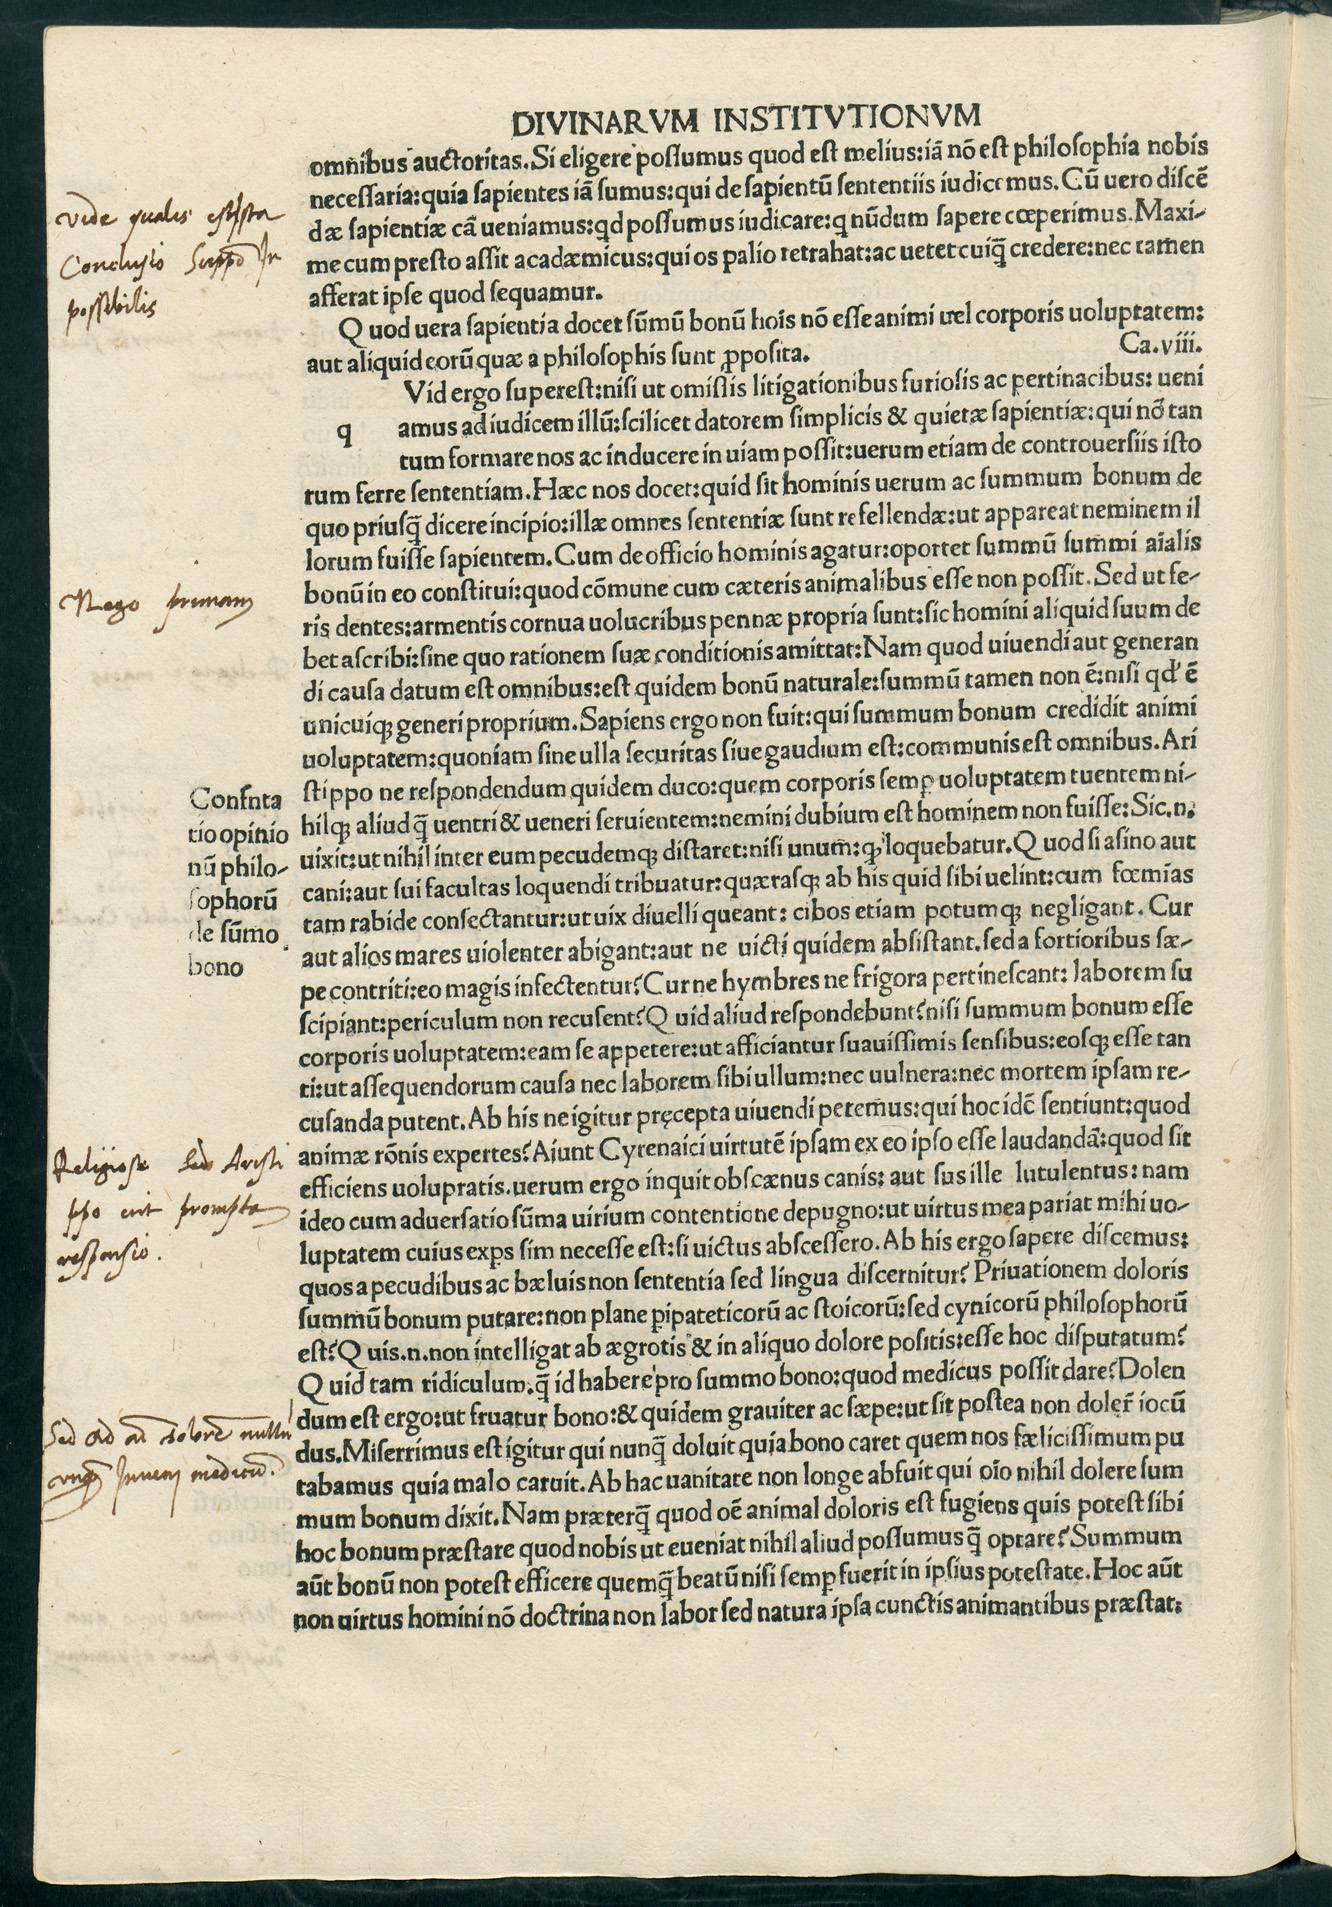 DIVINARVM INSTITVTIONVM
omnibus auctoritas. Si eligere possumus quod est melius: iā nō est philosophia nobis
necessaria: quia sapientes iā sumus: qui de sapientū sententiis iudicemus. Cū uero discē
dæ sapientiæ cā ueniamus: qd possumus iudicare: q nūdum sapere cœperimus. Maxi-
me cum presto assit acadæmicus: qui os palio retrahat: ac uetet cuiq̄ credere: nec tamen
afferat ipse quod sequamur.
Quod uera sapientia docet sūmū bonū hoīs nō esse animi uel corporis uoluptatem:
aut aliquid eorū quæ a philosophis sunt ꝓposita. Ca.viii.
Vid ergo superest: nisi ut omissis litigationibus furiosis ac pertinacibus: ueni
q amus ad iudicem illū: scilicet datorem simplicis & quietæ sapientiæ: qui nō tan
tum formare nos ac inducere in uiam possit: uerum etiam de controuersiis isto
rum ferre sententiam. Hæc nos docet: quid sit hominis uerum ac summum bonum de
quo priusq̄ dicere incipio: illæ omnes sententiæ sunt refellendæ: ut appareat neminem il
lorum fuisse sapientem. Cum de officio hominis agatur: oportet summū summi aīalis
bonū in eo constitui: quod cōmune cum cæteris animalibus esse non possit. Sed ut fe-
ris dentes: armentis cornua uolucribus pennæ propria sunt: sic homini aliquid suum de
bet ascribi: sine quo rationem suæ conditionis amittat: Nam quod uiuendi aut generan
di causa datum est omnibus: est quidem bonū naturale: summū tamen non ē: nisi qd' ē
unicuiq; generi proprium. Sapiens ergo non fuit: qui summum bonum credidit animi
uoluptatem: quoniam siue ulla securitas siue gaudium est: communis est omnibus. Ari
stippo ne respondendum quidem duco: quem corporis semꝑ uoluptatem tuentem ni-
hilq; aliud q̄ uentri & ueneri seruientem: nemini dubium est hominem non fuisse: Sic .n.
uixit: ut nihil inter eum pecudemq; distaret: nisi unum: ꝙ loquebatur. Quod si asino aut
cani: aut sui facultas loquendi tribuatur: quærasq; ab his quid sibi uelint: cum fœmīas
tam rabide consectantur: ut uix diuelli queant: cibos etiam potumq; negligant. Cur
aut alios mares uiolenter abigant: aut ne uicti quidem absistant. sed a fortioribus sæ-
pe contriti: eo magis insectentur? Cur ne hymbres ne frigora pertinescant: laborem su
scipiant: periculum non recusent? Quid aliud respondebunt? nisi summum bonum esse
corporis uoluptatem: eam se appetere: ut afficiantur suauissimis sensibus: eosq; esse tan
ti: ut assequendorum causa nec laborem sibi ullum: nec uulnera: nec mortem ipsam re-
cusanda putent. Ab his ne igitur pręcepta uiuendi petemus: qui hoc idē sentiunt: quod
animæ rōnis expertes? Aiunt Cyrenaici uirtutē ipsam ex eo ipso esse laudandā: quod sit
efficiens uolupratis. uerum ergo inquit obscænus canis: aut sus ille lutulentus: nam
ideo cum aduersatio sūma uirium contentione depugno: ut uirtus mea pariat mihi uo-
luptatem cuius exꝑs sim necesse est: si uictus abscessero. Ab his ergo sapere discemus:
quos a pecudibus ac bæluis non sententia sed lingua discernitur? Priuationem doloris
summū bonum putare: non plane ꝑipateticorū ac stoicorū: sed cynicorū philosophorū
est? Quis .n. non intelligat ab ægrotis & in aliquo dolore positis: esse hoc disputatum?
Quid tam ridiculum. q̄ id habere pro summo bono: quod medicus possit dare? Dolen
dum est ergo: ut fruatur bono: & quidem grauiter ac sæpe: ut sit postea non doler̄ iocū
dus. Miserrimus est igitur qui nunq̄ doluit quia bono caret quem nos fælicissimum pu
tabamus quia malo caruit. Ab hac uanitate non longe abfuit qui oīo nihil dolere sum
mum bonum dixit. Nam præterq̄ quod oē animal doloris est fugiens quis potest sibi
hoc bonum præstare quod nobis ut eueniat nihil aliud possumus q̄ optare? Summum
aūt bonū non potest efficere quemq̄ beatū nisi semꝑ fuerit in ipsius potestate. Hoc aūt
non uirtus homini nō doctrina non labor sed natura ipsa cunctis animantibus præstat:
Vide qualis est ista
Conclusio Suppō In
possibilis
Nego primam
Confuta
tio opinio
nū philo-
sophorū
de sūmo
bono
Religiose sed Aristi
ppo erit prompta
responsio.
Sed ad dolorē nullū
unq̄ inueni medicū.